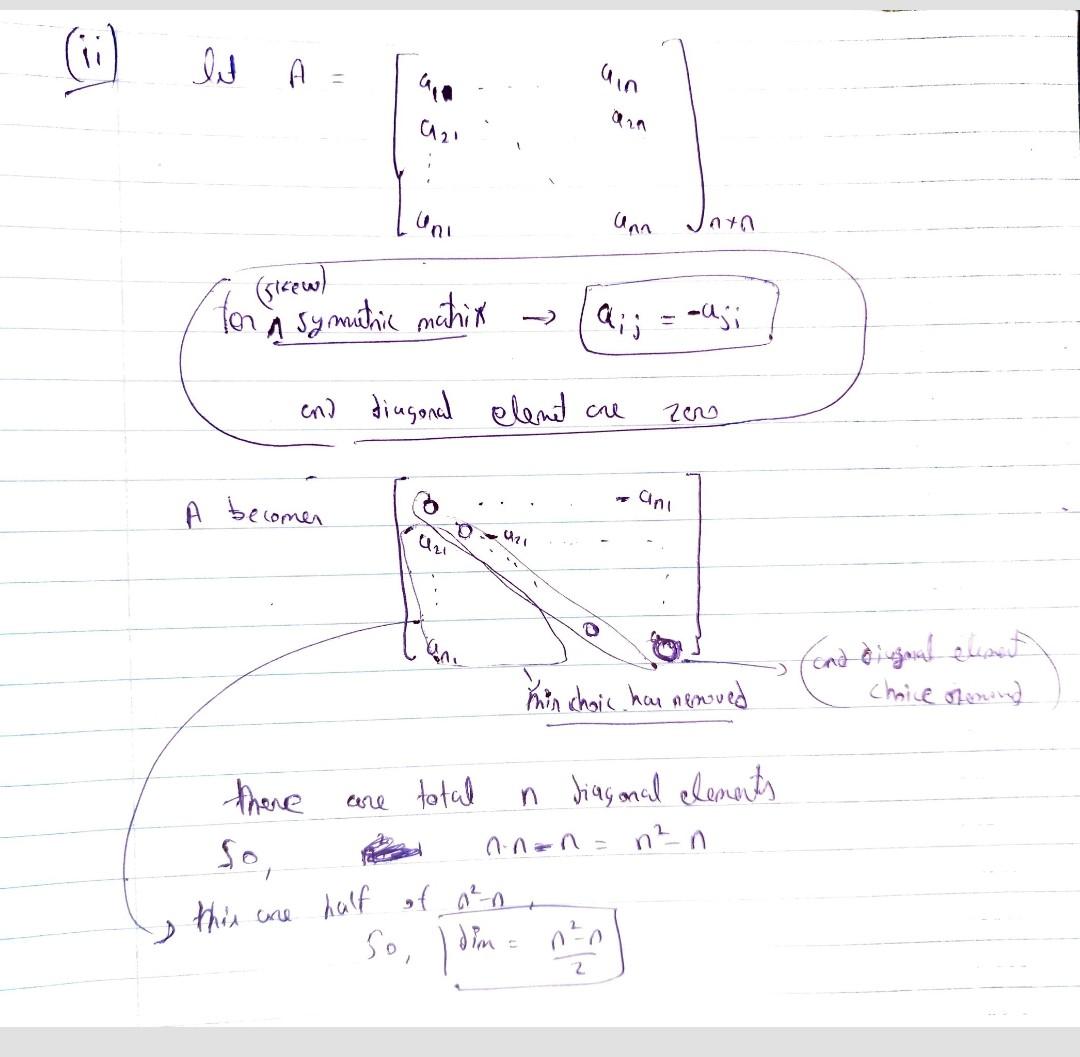 (ii) let A = [ a11 . . . a1n
a21 a2n
⋮
an1 ann ] n×n
(skew)
for ∧ symmetric matrix → aij = -aji
and diagonal elemt are zero
A becomes [ 0 . . . - an1
a21 0 - a21 . . . - -
⋮
an1 0 0 ]
this choic has removed
(and diagonal element
choice removed)
there are total n diagonal elements
So, n.n - n = n² - n
→ this are half of n²-n.
So, dim = n²-n / 2